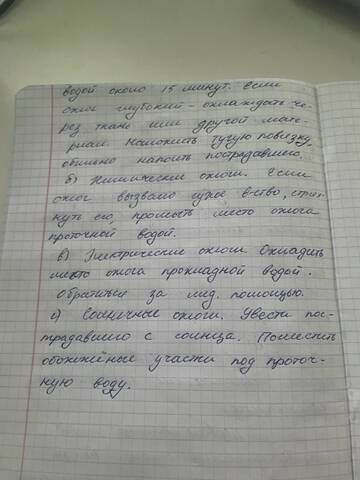 водой около 15 минут. Если
ожог глубокий - охлаждать че-
рез ткань или другой мате-
риал. Наложить тугую повязку,
обильно напоить пострадавшего.
б) Химические ожоги. Если
ожог вызвало сухое в-ство, стрях-
нуть его, промыть место ожога
проточной водой.
в) Электрические ожоги. Охладить
место ожога прохладной водой.
Обратиться за мед. помощью.
г) Солнечные ожоги. Увести пос-
традавшего с солнца. Поместить
обожжёные участки под проточ-
ную воду.